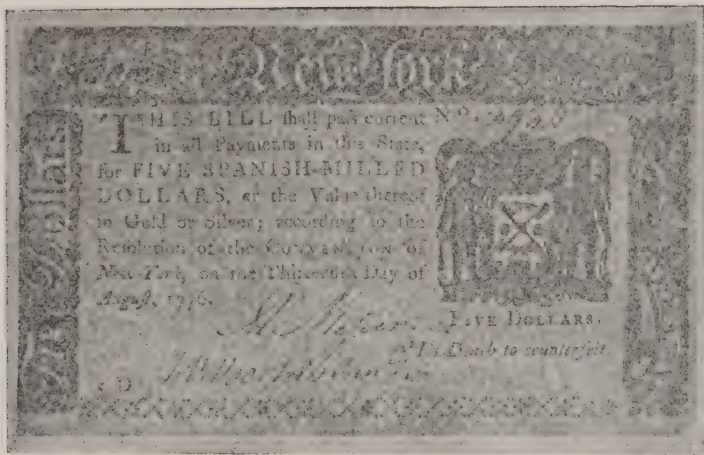 New York
Dollars
THIS BILL shall pass current
in all Payments in this State,
for FIVE SPANISH-MILLED
DOLLARS, or the Value thereof
in Gold or Silver; according to the
Resolution of the CONVENTION of
New-York, on the Thirteenth Day of
August, 1776.
No.
FIVE DOLLARS.
'Tis Death to counterfeit.